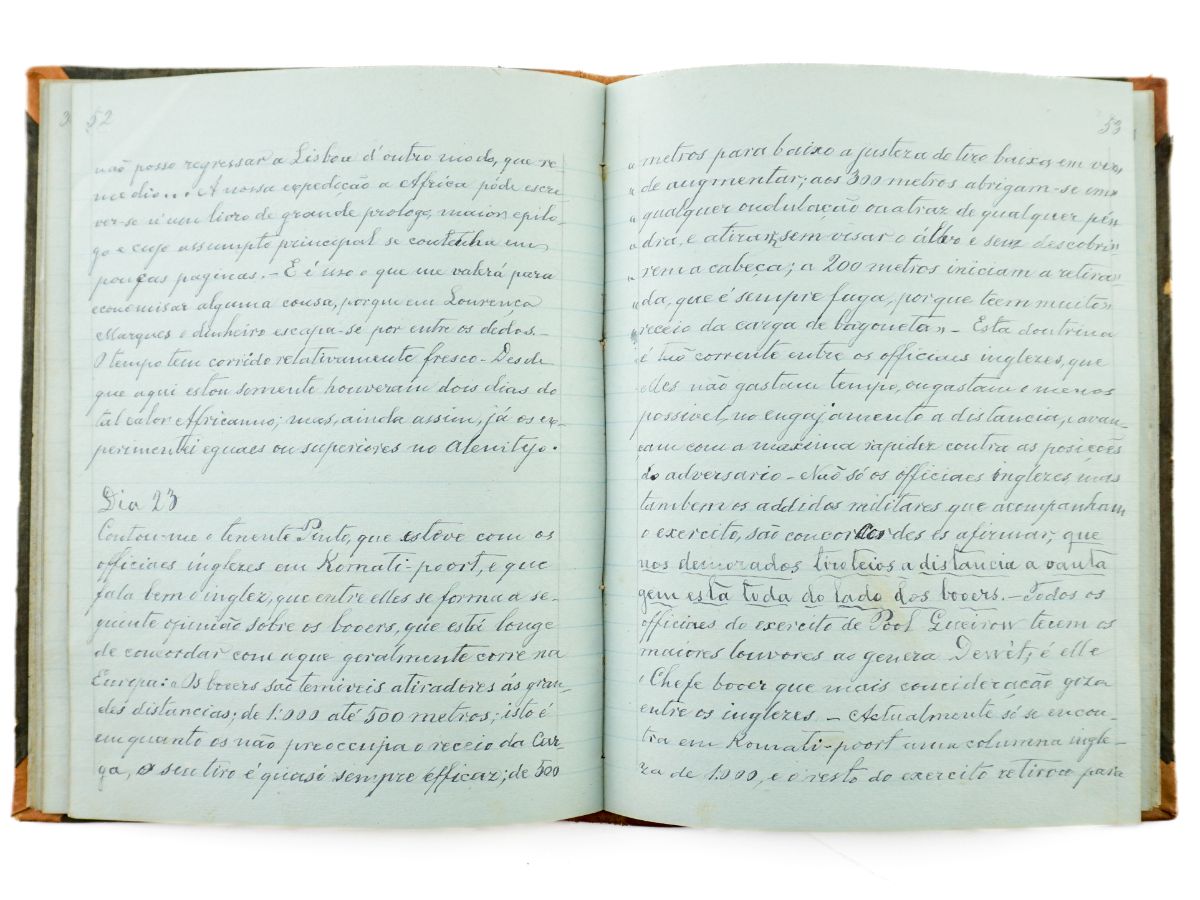 52
não posso regressar a Lisboa d'outro modo, que re-
medio... A nossa expedição a Africa póde escre
ver-se n'um livro de grande prologo, maior epilo-
go e cujo assumpto principal se contenha em
poucas paginas. - E é isso o que me valerá para
economisar alguma cousa, porque em Lourenço
Marques o dinheiro escapa-se por entre os dedos. -
O tempo tem corrido relativamente fresco - Desde
que aqui estou somente houveram dois dias do
tal calor Africanno; mas, ainda assim, já os ex-
perimentei eguaes ou superiores no Alemtejo.
Dia 23
Contou-me o tenente Pinto, que esteve com os
officiaes inglezes em Komati-poort, e que
fala bem o inglez, que entre elles se forma a se-
guinte opinião sobre os booers, que está longe
de concordar com a que geralmente corre na
Europa: "Os booers são temiveis atiradores ás gran-
des distancias; de 1:000 até 500 metros; isto é
emquanto os não preoccupa o receio da Car-
ga, o seu tiro é quasi sempre efficaz; de 500
53
" metros para baixo a justeza do tiro baixa em vez
" de augmentar; aos 300 metros abrigam-se em
" qualquer ondulação ou atraz de qualquer pe
" dra, e atiram, sem visar o alvo e sem descobri-
" rem a cabeça; a 200 metros iniciam a retira
" da, que é sempre fuga, porque teem muito
" receio da carga de bayoneta" - Esta doutrina
é tão corrente entre os officiaes inglezes, que
elles não gastam tempo, ou gastam o menos
possivel, no engajamento a distancia, e avan-
çam com a maxima rapidez contra as posições
do adversario - Não só os officiaes inglezes mas
tambem os addidos militares que acompanham
o exercito, são concordes em afirmar, que
nos demorados tiroteios a distancia a vanta
gem está toda do lado dos booers. - Todos os
officiaes do exercito de Pool Gueirow tecem os
maiores louvores ao genera Dewet; é elle
o Chefe booer que mais concideração goza
entre os inglezes - Actualmente só se encon-
tra em Komati-poort uma columna ingle-
za de 1:000, e o resto do exercito retirou para